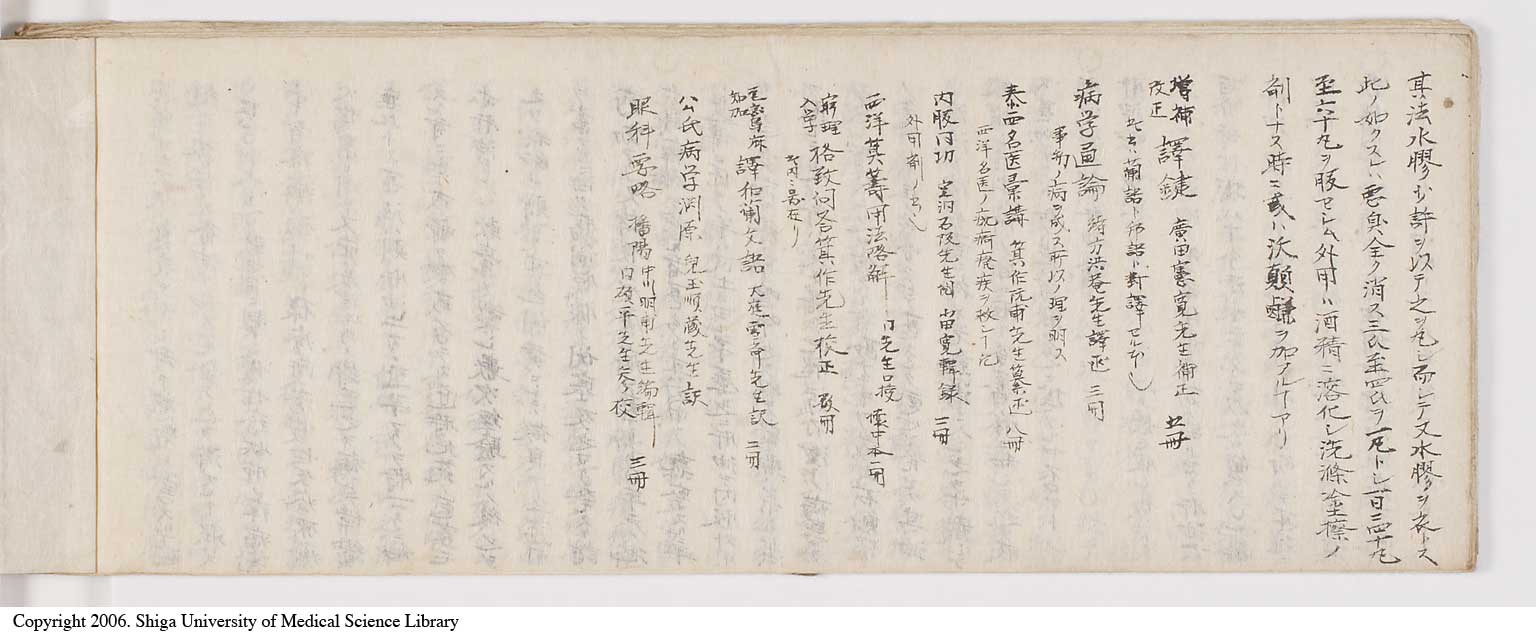 其法水膠少許ヲ以テ之ヲ丸シ而シテ又水膠ヲ衣トス
此ノ如クスレハ悪臭全ク消ス三氏至四氏ヲ一丸トシ一日三四十丸
至六十丸ヲ服セシム外用ハ酒精ニ溶化シ洗滌塗擦ノ
剤トナス時ニ或ハ沃顛 ヲ加フルヿアリ
増補改正 譯鍵 廣田憲寛先生 正 五冊
此書ハ蘭語ト邦語ト對譯セル
病学通論 緒方洪菴先生譯述 三冊
事物ノ病ヲ成ス所以ノ理ヲ明ス
泰西名医彙講 箕作阮甫先生纂述 八冊
西洋名医ノ 病癈疾ヲ救シ
内服同功 石坂先生 寛輯録 三冊
外用剤ノ書也
西洋算籌用法略解 同先生口授 懐中本一冊
窮理入学 格致問答箕作先生校正 冊
在リ
譯和蘭文語 大庭雪斎先生訳 二冊
公氏病学淵源 児玉順蔵先生訳
眼科学略 播陽中川明甫先生編輯
口碩平先生 校 三冊
Copyright 2006. Shiga University of Medical Science Library